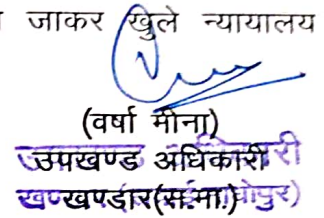 जाकर खुले न्यायालय
(वर्षा मीना)
उपखण्ड अधिकारी
खण्डार(स.मा.)